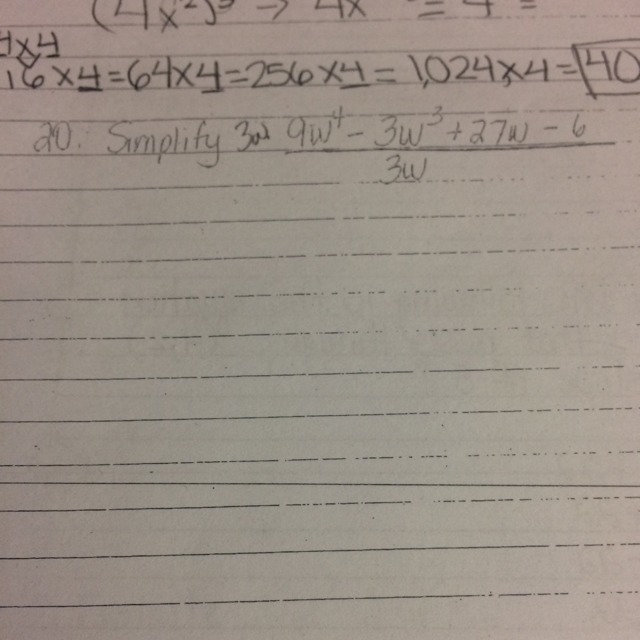 (4x²)⁵ => 4x = 4 =
4x4
16x4=64x4=256x4=1,024x4=40
20. Simplify 9w⁴ - 3w³ + 27w - 6
3w